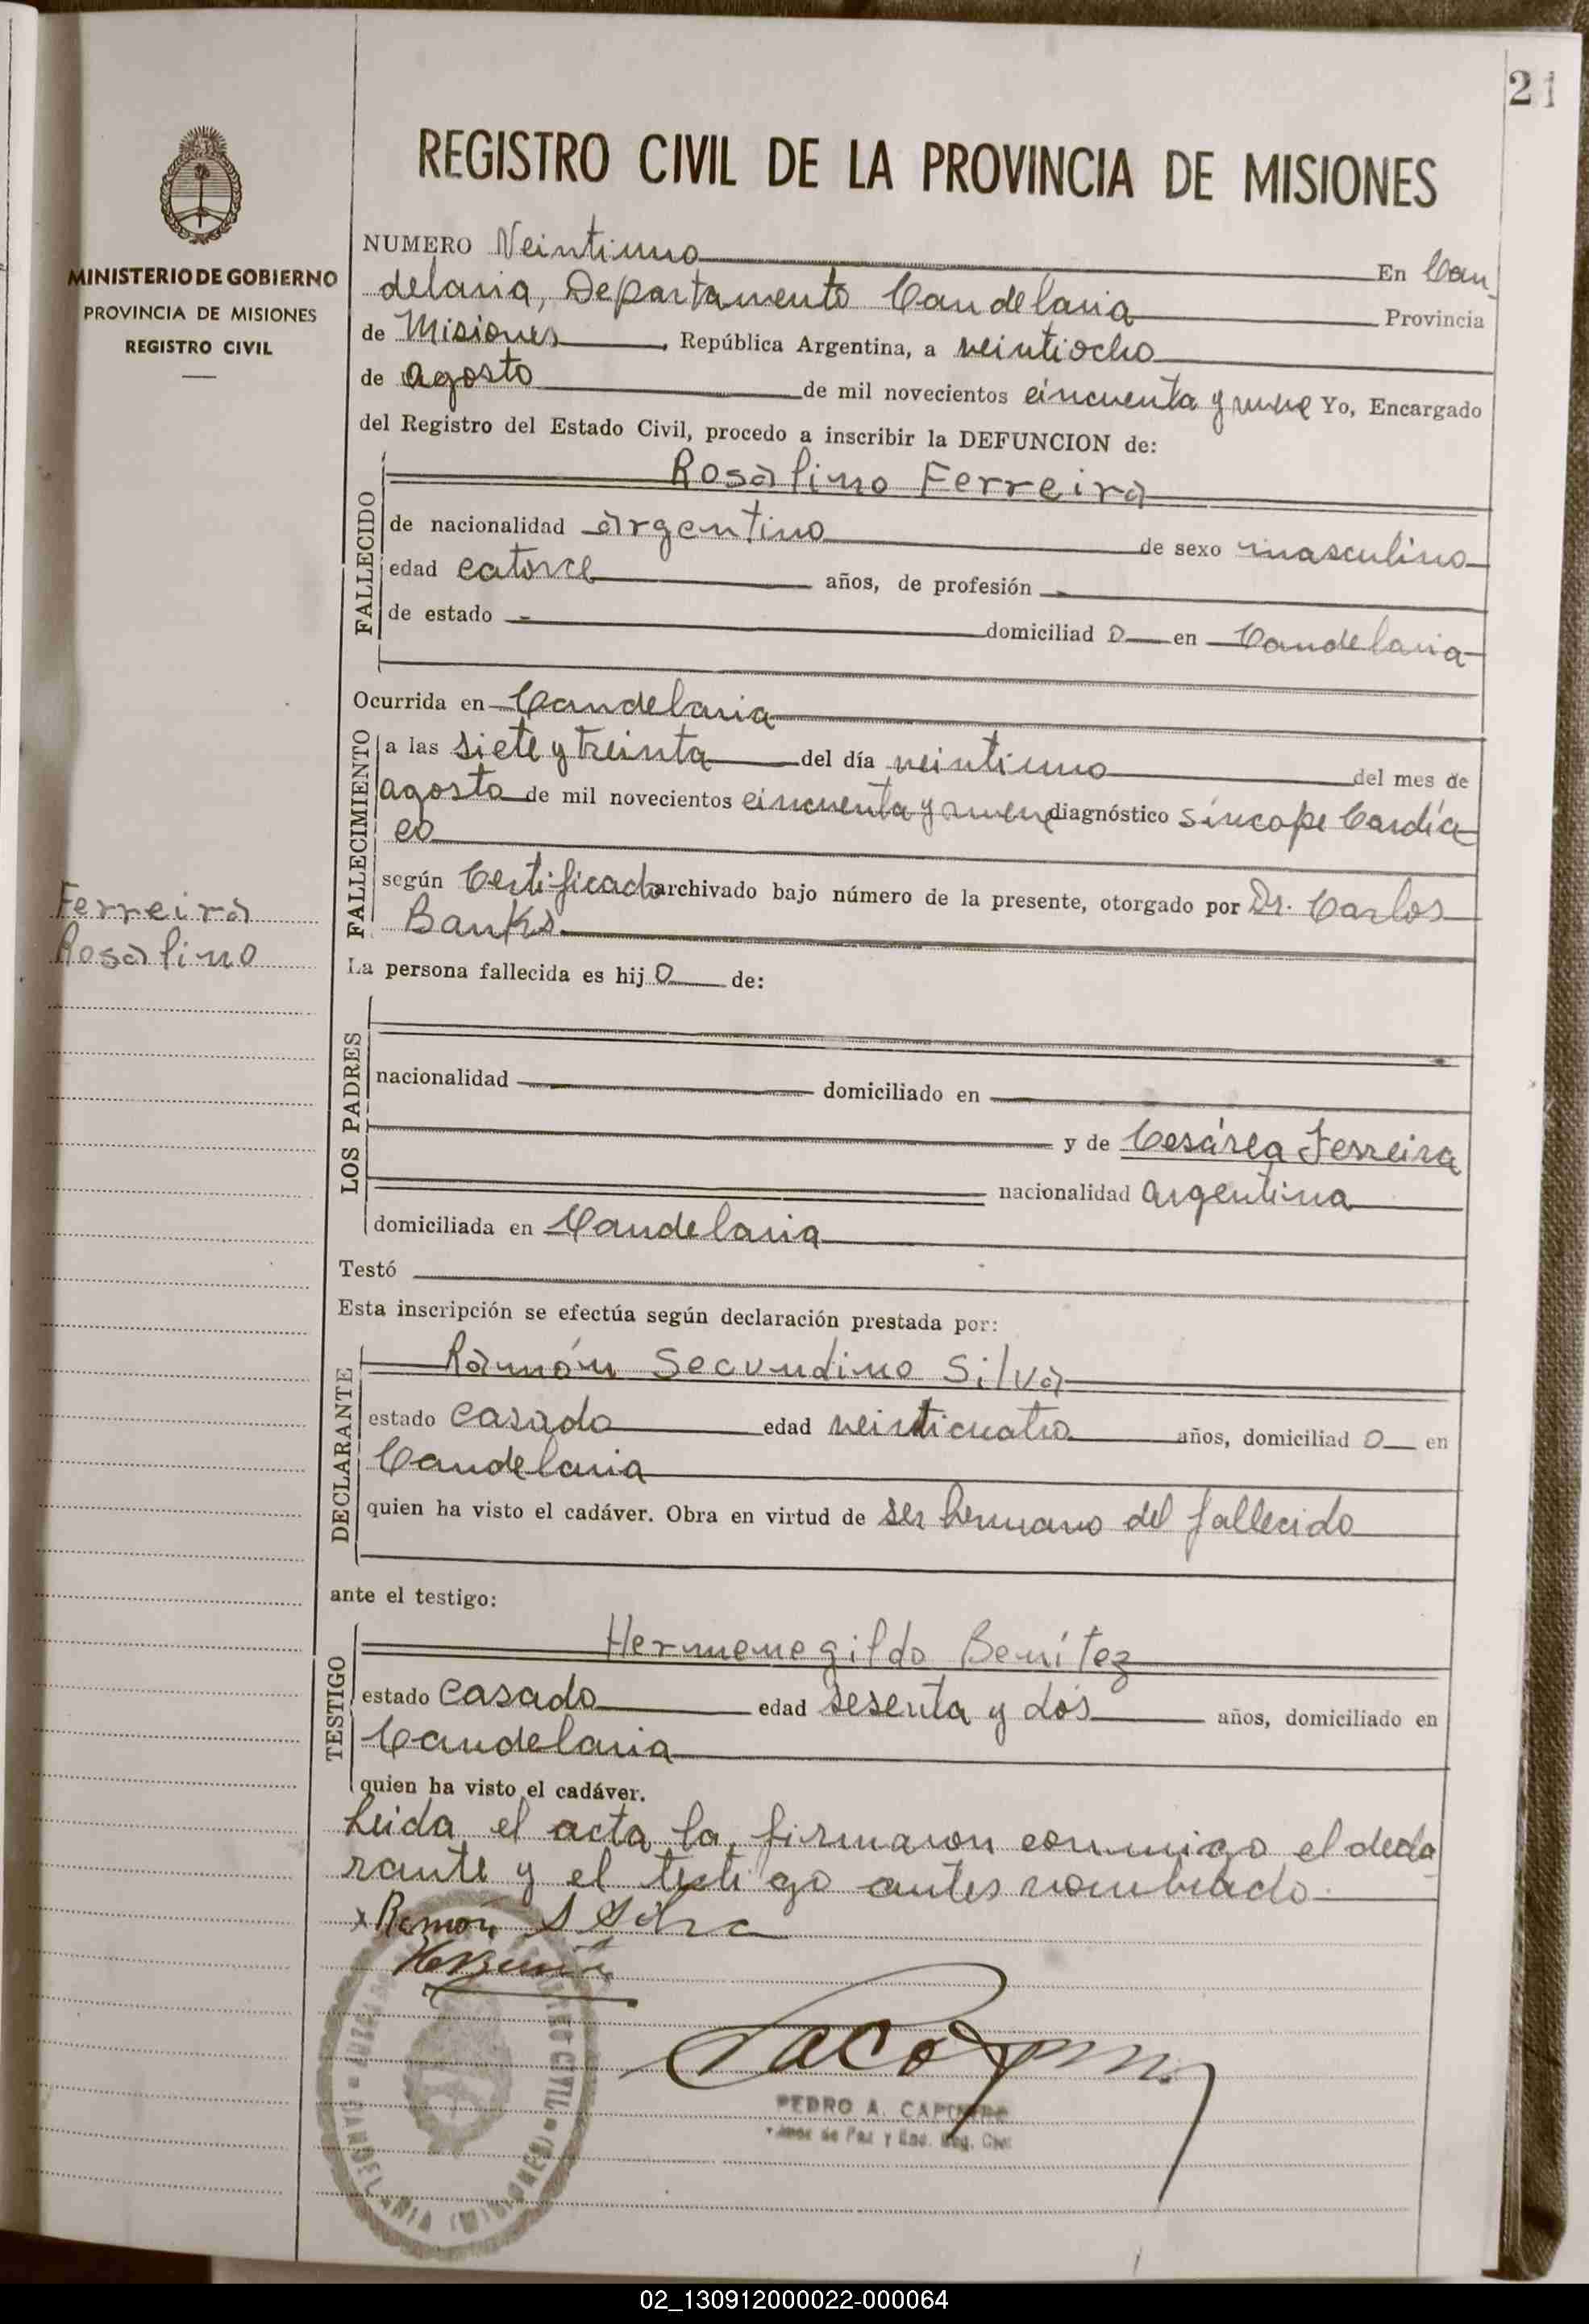 21
REGISTRO CIVIL DE LA PROVINCIA DE MISIONES
MINISTERIO DE GOBIERNO
PROVINCIA DE MISIONES
REGISTRO CIVIL
NUMERO Veintiuno En Can-
delaria, Departamento Candelaria Provincia
de Misiones, República Argentina, a veintiocho
de agosto de mil novecientos cincuenta y nueve Yo, Encargado
del Registro del Estado Civil, procedo a inscribir la DEFUNCION de:
FALLECIDO
Rosalino Ferreira
de nacionalidad argentino de sexo masculino
edad catorce años, de profesión
de estado domiciliad o en Candelaria
Ocurrida en Candelaria
FALLECIMIENTO
a las siete y treinta del día veintiuno del mes de
agosto de mil novecientos cincuenta y nueve diagnóstico síncope Cardía
co
según Certificado archivado bajo número de la presente, otorgado por Dr. Carlos
Banks
Ferreira
Rosalino
La persona fallecida es hij o de:
LOS PADRES
nacionalidad domiciliado en
y de Cesárea Ferreira
nacionalidad argentina
domiciliada en Candelaria
Testó
Esta inscripción se efectúa según declaración prestada por:
DECLARANTE
Ramón Secundino Silva
estado casado edad veinticuatro años, domiciliad o en
Candelaria
quien ha visto el cadáver. Obra en virtud de ser hermano del fallecido
ante el testigo:
TESTIGO
Hermenegildo Benítez
estado casado edad sesenta y dos años, domiciliado en
Candelaria
quien ha visto el cadáver.
Leida el acta la firmaron conmigo el decla-
rante y el testigo antes nombrado.
x Ramón S Silva
PEDRO A.
Juez de Paz y Enc. Reg. Civil
CIVIL
CANDELARIA (MISIONES)
02_130912000022-000064